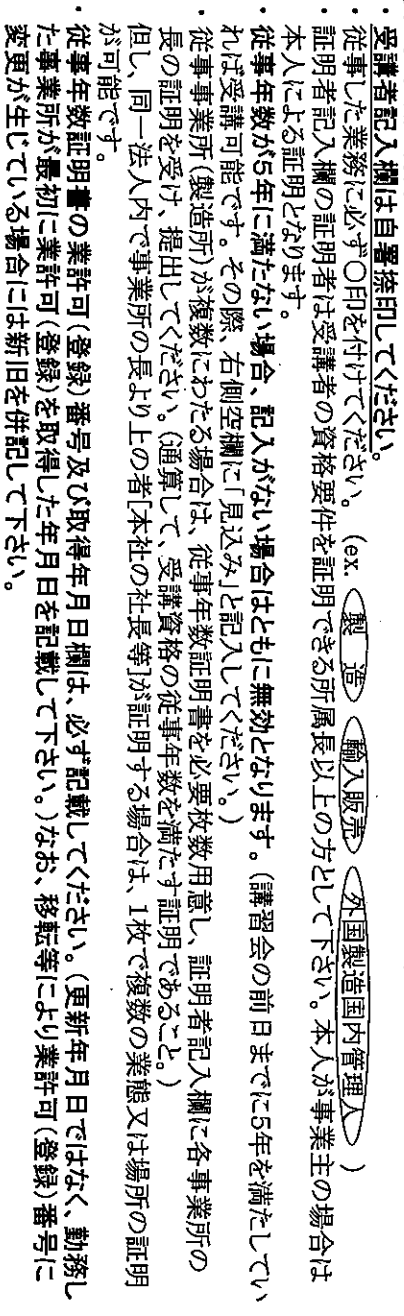 ・受講者記入欄は自署捺印してください。
・従事した業務に必ず○印を付けてください。(ex. 製 造 輸入販売 外国製造国内管理人 )
・証明者記入欄の証明者は受講者の資格要件を証明できる所属長以上の方として下さい。本人が事業主の場合は
本人による証明となります。
・従事年数が5年に満たない場合、記入がない場合はともに無効となります。(講習会の前日までに5年を満たしてい
れば受講可能です。その際、右側空欄に「見込み」と記入してください。)
・従事事業所(製造所)が複数にわたる場合は、従事年数証明書を必要枚数用意し、証明者記入欄に各事業所の
長の証明を受け、提出してください。(通算して、受講資格の従事年数を満たす証明であること。)
但し、同一法人内で事業所の長より上の者[本社の社長等]が証明する場合は、1枚で複数の業態又は場所の証明
が可能です。
・従事年数証明書の業許可(登録)番号及び取得年月日欄は、必ず記載してください。(更新年月日ではなく、勤務し
た事業所が最初に業許可(登録)を取得した年月日を記載して下さい。)なお、移転等により業許可(登録)番号に
変更が生じている場合には新旧を併記して下さい。